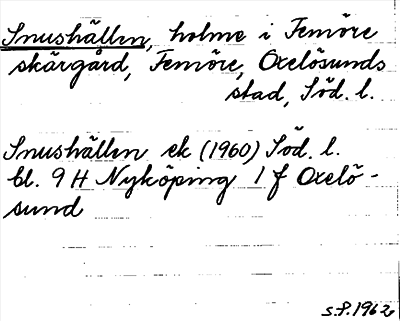 Snushällen, holme i Femöre
skärgård, Femöre, Oxelösunds
stad, Söd. l.
Snushällen ek (1960) Söd. l.
bl. 9 H Nyköping 1 f Oxelö-
sund
S.P. 1962